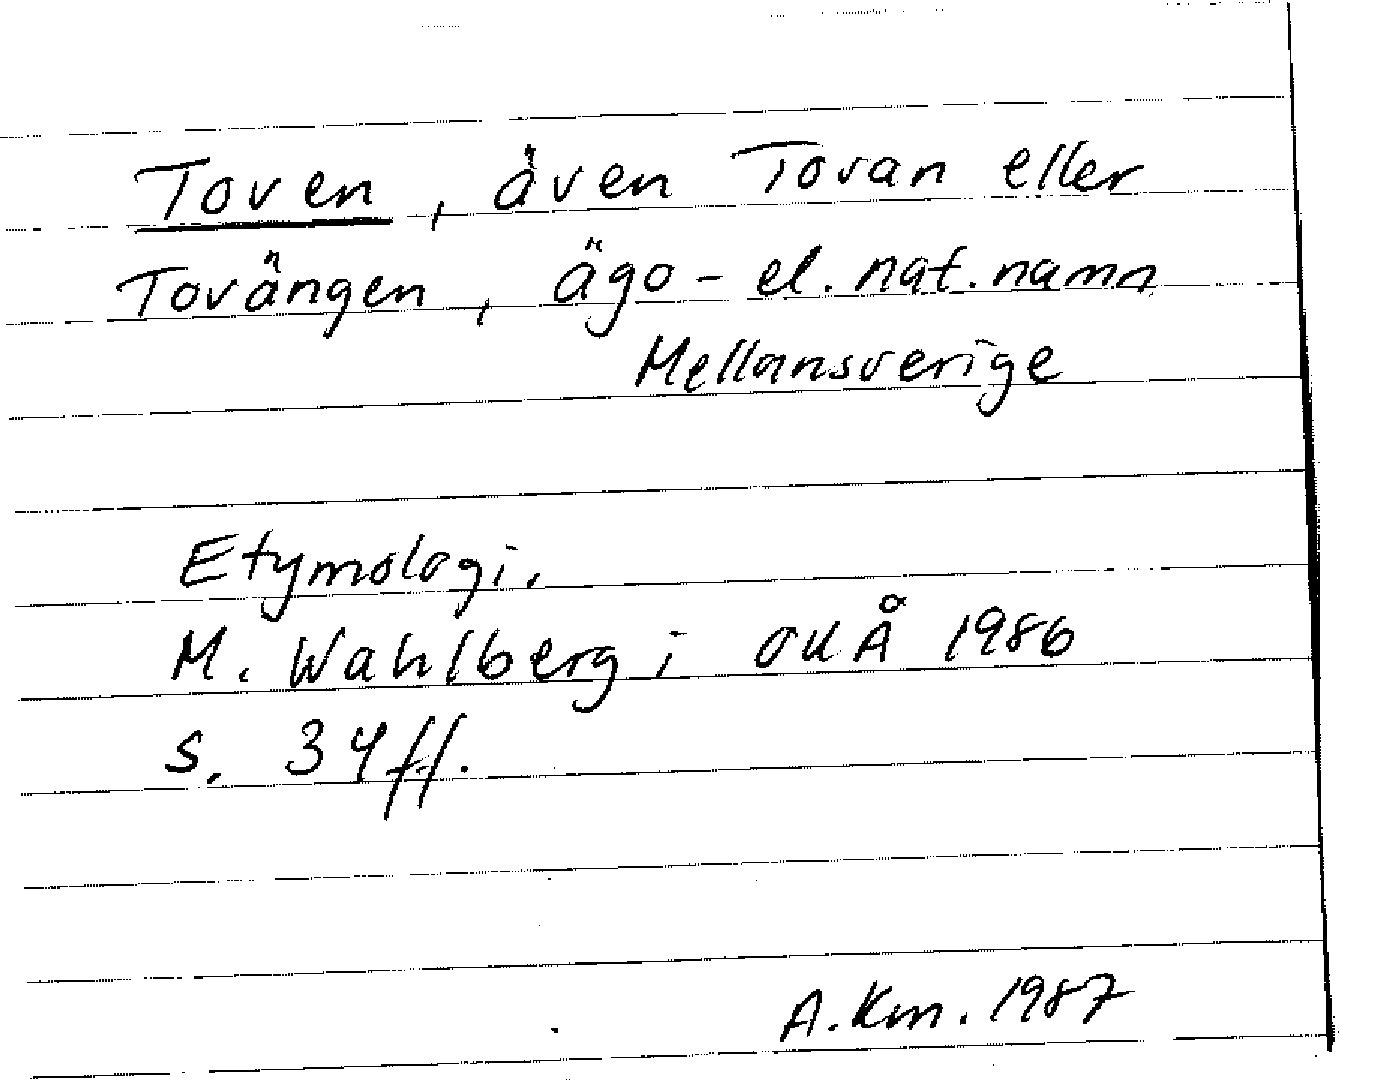 Toven, även Tovan eller
Tovängen, ägo- el. nat.namn
Mellansverige
Etymologi.
M. Wahlberg i OUÅ 1986
s. 34ff.
A.Km. 1987